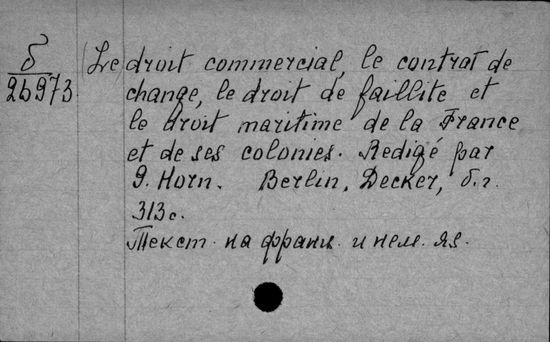 б
26973
(Le) droit commercial, le contrat de
change, le droit de faillite et
le droit maritime de la France
et de ses colonies. Redigé par
J. Horn. Berlin, Decker, б.г.
313 с.
Текст на франц. и нем. яз.